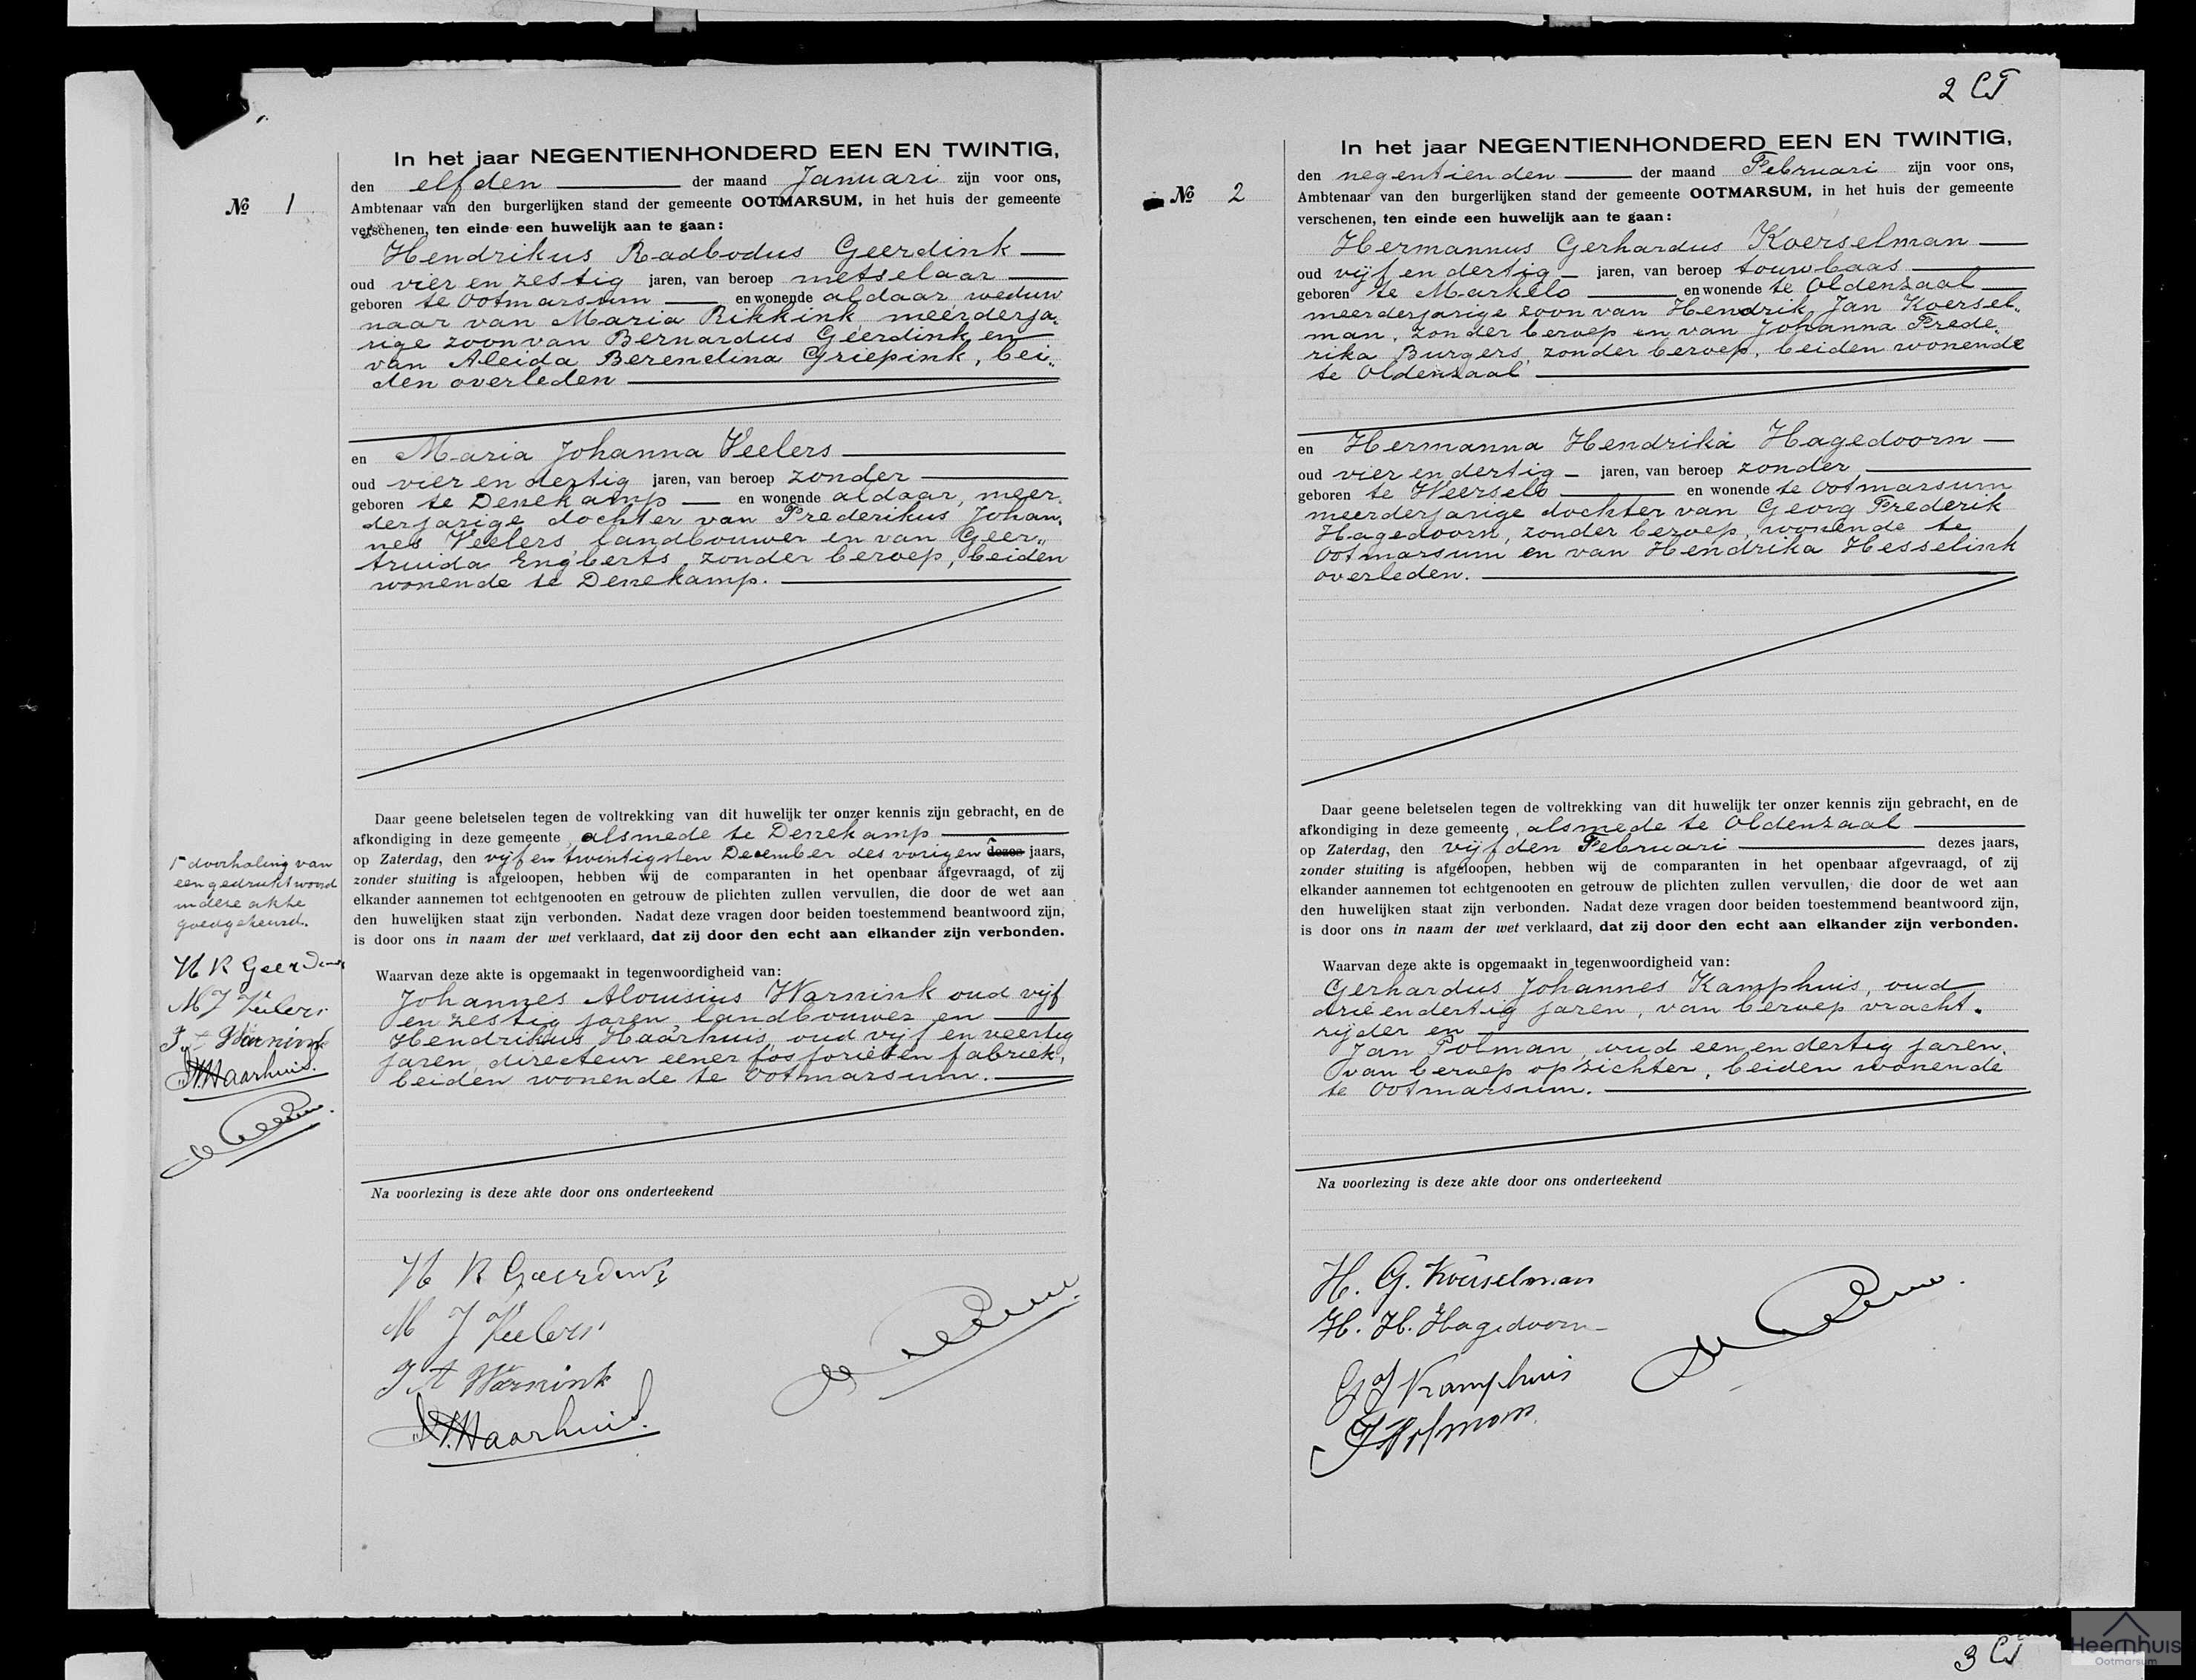 In het jaar NEGENTIENHONDERD EEN EN TWINTIG,
den elfden der maand Januari zijn voor ons,
№ 1
Ambtenaar van den burgerlijken stand der gemeente OOTMARSUM, in het huis der gemeente
verschenen, ten einde een huwelijk aan te gaan:
Hendrikus Radbodus Geerdink
oud vier en zestig jaren, van beroep metselaar
geboren te Ootmarsum en wonende aldaar, weduw
naar van Maria Rikkink, meerderja„
rige zoon van Bernardus Geerdink en
van Aleida Berendina Griepink, bei„
den overleden
en Maria Johanna Veelers
oud vier en dertig jaren, van beroep zonder
geboren te Denekamp en wonende aldaar, meer„
derjarige dochter van Frederikus Johan„
nes Veelers, landbouwer en van Geer„
truida Engberts, zonder beroep, beiden
wonende te Denekamp.
Daar geene beletselen tegen de voltrekking van dit huwelijk ter onzer kennis zijn gebracht, en de
afkondiging in deze gemeente, alsmede te Denekamp
op Zaterdag, den vijf en twintigsten December des vorigen dezes jaars,
zonder stuiting is afgeloopen, hebben wij de comparanten in het openbaar afgevraagd, of zij
elkander aannemen tot echtgenooten en getrouw de plichten zullen vervullen, die door de wet aan
den huwelijken staat zijn verbonden. Nadat deze vragen door beiden toestemmend beantwoord zijn,
is door ons in naam der wet verklaard, dat zij door den echt aan elkander zijn verbonden.
1 doorhaling van
een gedrukt woord
in deze akte
goedgekeurd.
H R Geerdink
M J Veelers
J A Warnink
Haarhuis.
Waarvan deze akte is opgemaakt in tegenwoordigheid van:
Johannes Alouisius Warnink oud vijf
en zestig jaren, landbouwer en
Hendrikus Haarhuis, oud vijf en veertig
jaren, directeur eener fosforieten fabriek,
beiden wonende te Ootmarsum.
Na voorlezing is deze akte door ons onderteekend
H R Geerdink
M J Veelers
J A Warnink
Haarhuis.
2
In het jaar NEGENTIENHONDERD EEN EN TWINTIG,
den negentienden der maand Februari zijn voor ons,
№ 2
Ambtenaar van den burgerlijken stand der gemeente OOTMARSUM, in het huis der gemeente
verschenen, ten einde een huwelijk aan te gaan:
Hermannus Gerhardus Koerselman
oud vijf en dertig jaren, van beroep touwbaas
geboren te Markelo en wonende te Oldenzaal
meerderjarige zoon van Hendrik Jan Koersel„
man, zonder beroep en van Johanna Frede„
rika Burgers, zonder beroep, beiden wonende
te Oldenzaal
en Hermanna Hendrika Hagedoorn
oud vier en dertig jaren, van beroep zonder
geboren te Weerselo en wonende te Ootmarsum
meerderjarige dochter van Georg Frederik
Hagedoorn, zonder beroep, wonende te
Ootmarsum en van Hendrika Hesselink
overleden.
Daar geene beletselen tegen de voltrekking van dit huwelijk ter onzer kennis zijn gebracht, en de
afkondiging in deze gemeente, alsmede te Oldenzaal
op Zaterdag, den vijfden Februari dezes jaars,
zonder stuiting is afgeloopen, hebben wij de comparanten in het openbaar afgevraagd, of zij
elkander aannemen tot echtgenooten en getrouw de plichten zullen vervullen, die door de wet aan
den huwelijken staat zijn verbonden. Nadat deze vragen door beiden toestemmend beantwoord zijn,
is door ons in naam der wet verklaard, dat zij door den echt aan elkander zijn verbonden.
Waarvan deze akte is opgemaakt in tegenwoordigheid van:
Gerhardus Johannes Kamphuis, oud
drie en dertig jaren, van beroep vracht„
rijder en
Jan Polman, oud een en dertig jaren,
van beroep opzichter, beiden wonende
te Ootmarsum.
Na voorlezing is deze akte door ons onderteekend
H. G. Koerselman
H. H. Hagedoorn
G J Kamphuis
J Polman
3
Heemhuis
Ootmarsum